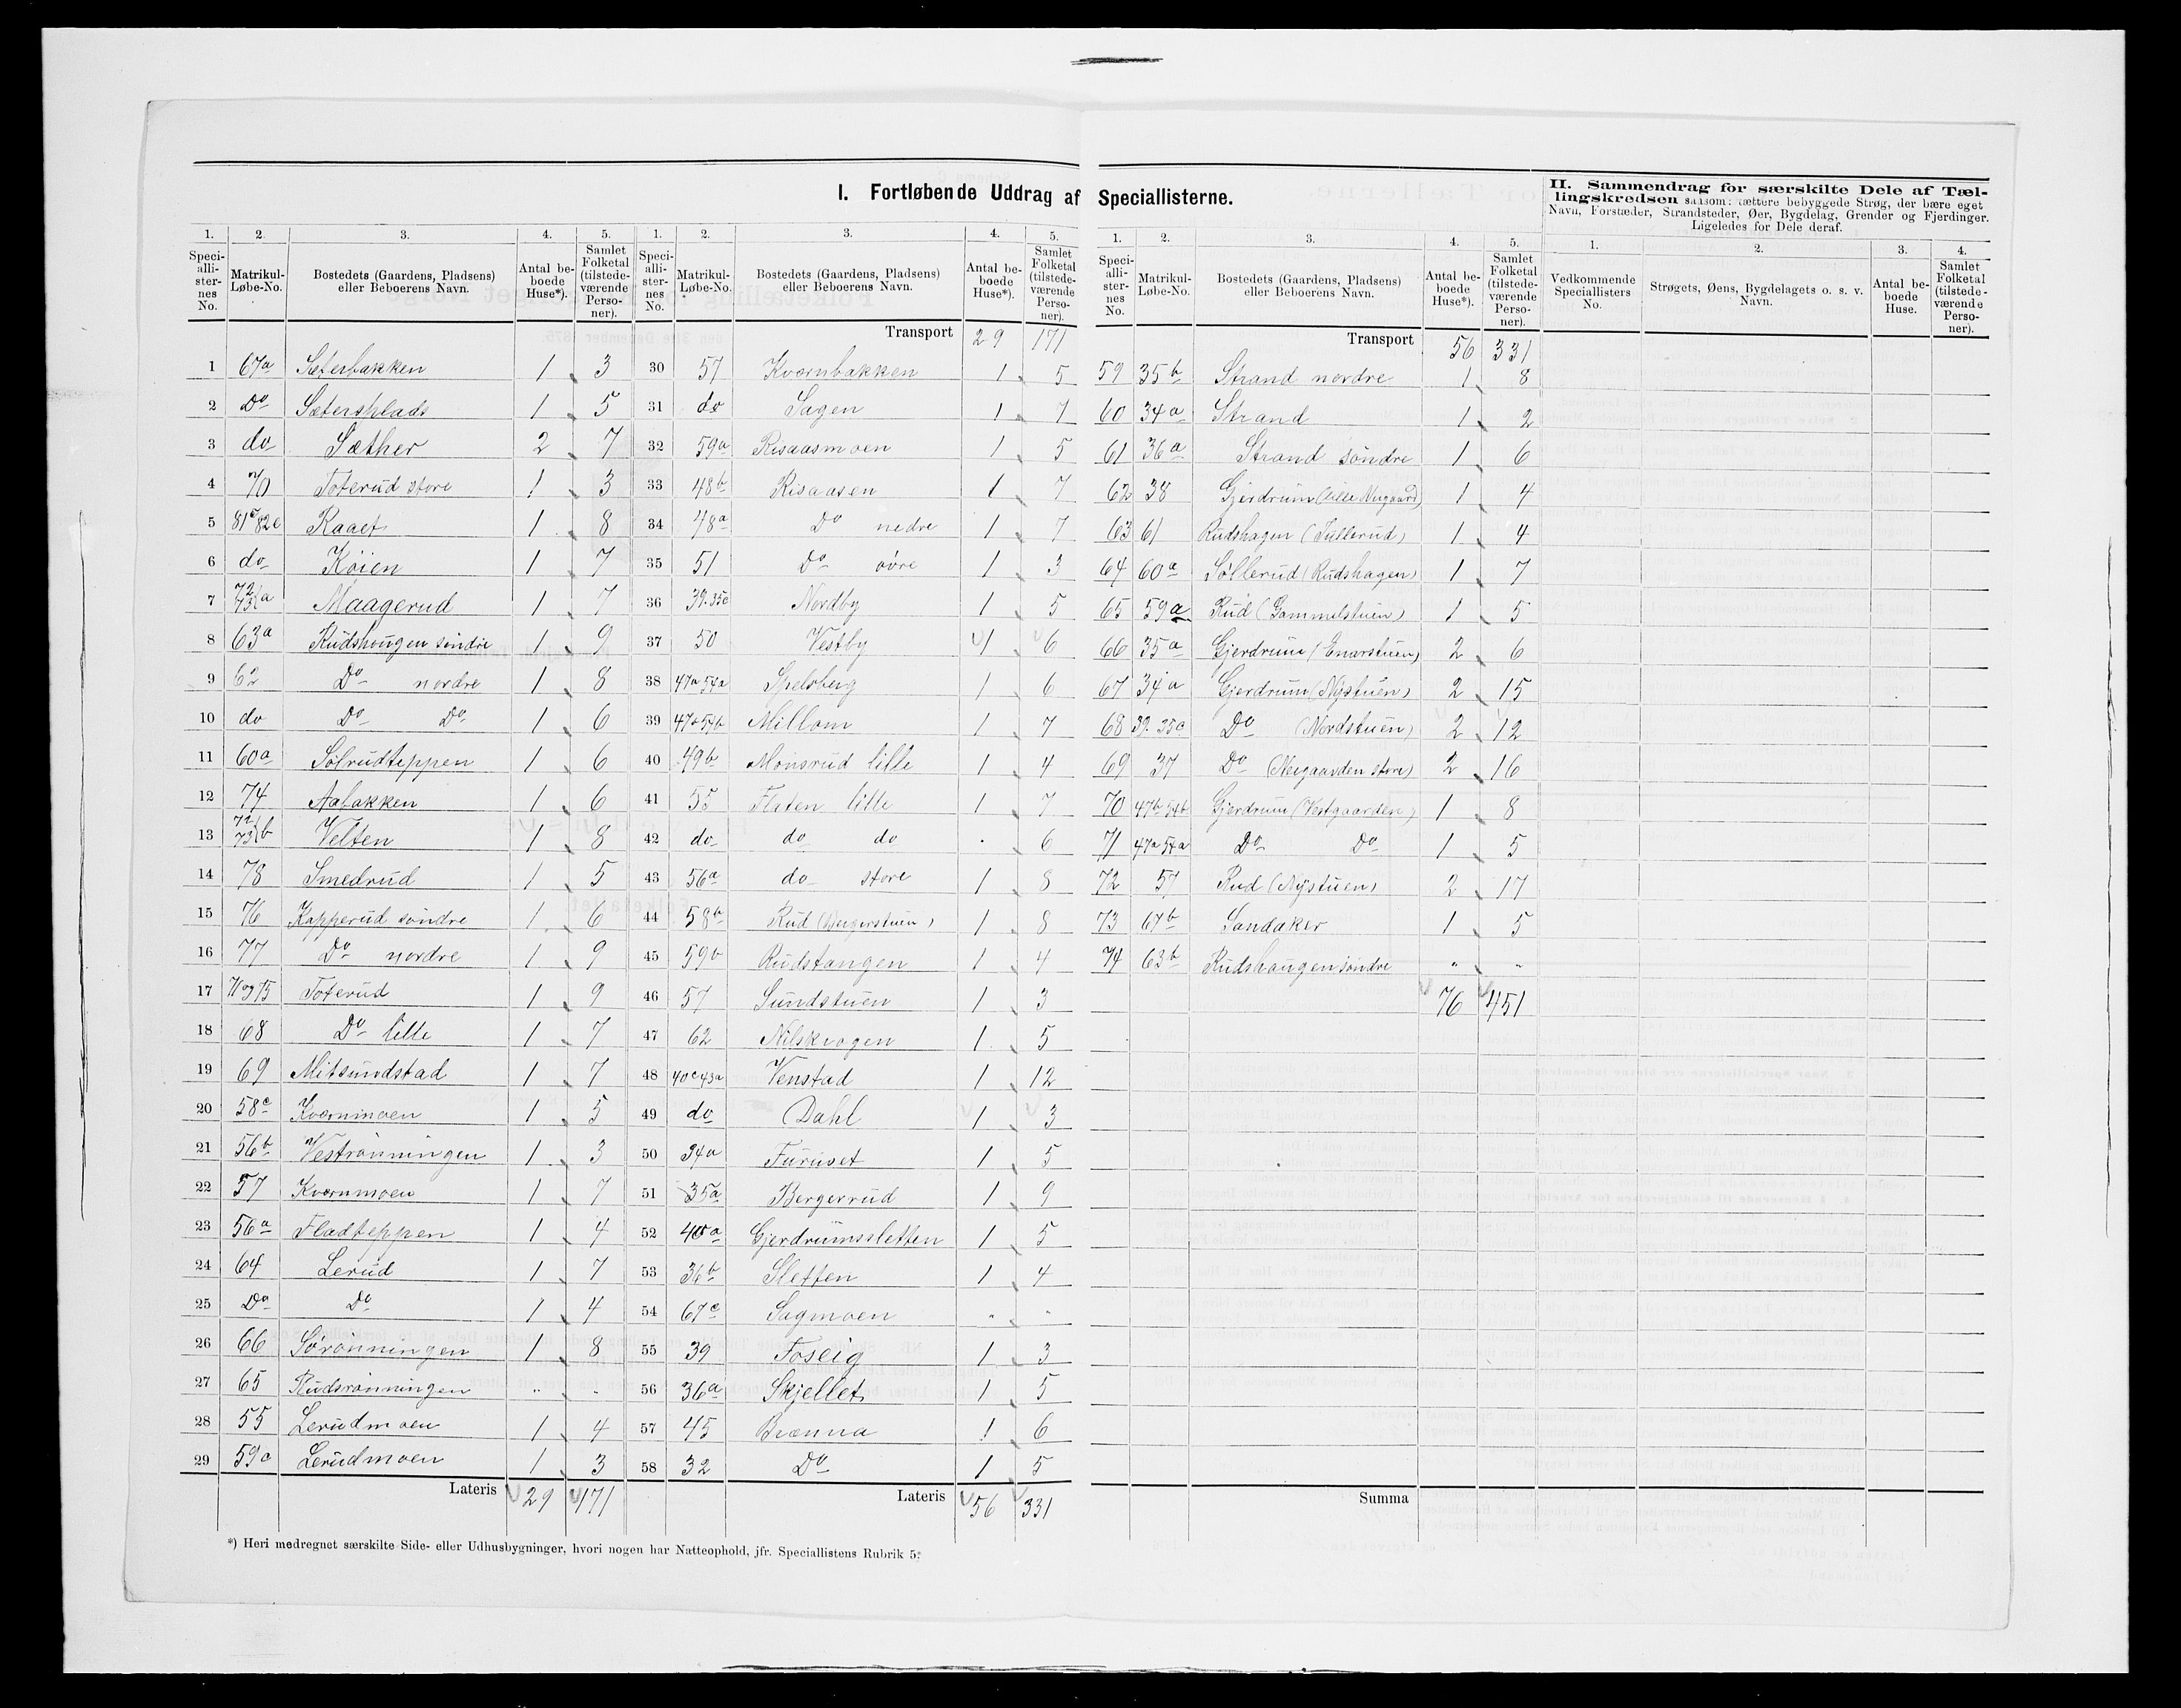 I. Fortløbende Uddrag af Speciallisterne.
II. Sammendrag for særskilte Dele af Tæl-
lingskredsen saasom: tættere bebyggede Strøg, der bære eget
Navn, Forstæder, Strandsteder, Øer, Bygdelag, Grender og Fjerdinger.
Ligeledes for Dele deraf.
1. 2. 3. 4. 5.
Speci-alli-ster-nes No. Matrikul-Løbe-No. Bostedets (Gaardens, Pladsens) eller Beboerens Navn. Antal be-boede Huse*). Samlet Folketal (tilstede-værende Perso-ner).
1 67a Sæterbakken 1 3
2 Do Sætersplads 1 5
3 do Sæther 2 7
4 70 Toterud store 1 3
5 81c 82c Raaet 1 8
6 do Köien 1 7
7 72/73 a Maagerud 1 7
8 63a Rudshougen söndre 1 9
9 62 Do nordre 1 8
10 do Do Do 1 6
11 60a Solrudteppen 1 6
12 74 Aabakken 1 6
13 72/73 b Velten 1 8
14 78 Smedrud 1 5
15 76 Kapperud söndre 1 6
16 77 Do nordre 1 9
17 71 og 75 Toterud 1 9
18 68 Do lille 1 7
19 69 Mitsundstad 1 7
20 58c Kvernmoen 1 5
21 56b Veströnningen 1 3
22 57 Kvernmoen 1 7
23 56a Fladteppen 1 4
24 64 Lerud 1 7
25 Do Do 1 4
26 66 Sörönningen 1 8
27 65 Rudsrönningen " "
28 55 Lerudmoen 1 4
29 59a Lerudmoen 1 3
Lateris 29 171
1. 2. 3. 4. 5.
Speci-alli-ster-nes No. Matrikul-Løbe-No. Bostedets (Gaardens, Pladsens) eller Beboerens Navn. Antal be-boede Huse*). Samlet Folketal (tilstede-værende Perso-ner).
Transport 29 171
30 57 Kvernbakken 1 5
31 do Sagen 1 7
32 59a Risaasmoen 1 5
33 48b Risaasen 1 7
34 48a Do nedre 1 7
35 51 Do övre 1 3
36 39. 35c Nordby 1 5
37 50 Vestby 1 6
38 47a 54a Spelsberg 1 6
39 47b 54b Millom 1 7
40 49b Monsrud lille 1 4
41 55 Flaten lille 1 7
42 do do do . 6
43 56a do store 1 8
44 58b Rud 1 8
45 59b Rudstangen 1 4
46 57 Sundstuen 1 3
47 62 Nilskrogen 1 5
48 40c 43a Venstad 1 12
49 do Dahl 1 3
50 34a Furuset 1 5
51 35a Bergerrud 1 9
52 40a Gjerdrumssletten 1 5
53 36b Sletten 1 4
54 67c Sagmoen " "
55 39 Foseig 1 3
56 36a Skjellet 1 5
57 45 Brænna 1 6
58 32 Do 1 5
Lateris 56 331
*) Heri medregnet særskilte Side- eller Udhusbygninger, hvori nogen har Natteophold, jfr. Speciallistens Rubrik 5.
1. 2. 3. 4. 5.
Speci-alli-ster-nes No. Matrikul-Løbe-No. Bostedets (Gaardens, Pladsens) eller Beboerens Navn. Antal be-boede Huse*). Samlet Folketal (tilstede-værende Perso-ner).
Transport 56 331
59 35b Strand nordre 1 8
60 34a Strand 1 2
61 36a Strand söndre 1 6
62 38 Gjerdrum (lille Neigaard) 1 4
63 61 Rudshagen (Tullerud) 1 4
64 60a Söllerud (Rudshagen) 1 7
65 59a Rud (Gammelstuen) 1 5
66 35a Gjerdrum (Enarstuen) 2 6
67 34a Gjerdrum (Nystuen) 2 15
68 39. 35c Do (Nordstuen) 2 12
69 37 Do (Neigaarden store) 2 16
70 47b 54b Gjerdrum (Vestgaarden) 1 8
71 47a 54a Do Do 1 5
72 57 Rud (Nystuen) 2 17
73 67b Sandaker 1 5
74 63b Rudshaugen söndre " "
76 451
Summa
1. 2. 3. 4.
Vedkommende Speciallisters No. Strøgets, Øens, Bygdelagets o. s. v. Navn. Antal be-boede Huse. Samlet Folketal (tilstede-værende Perso-ner).